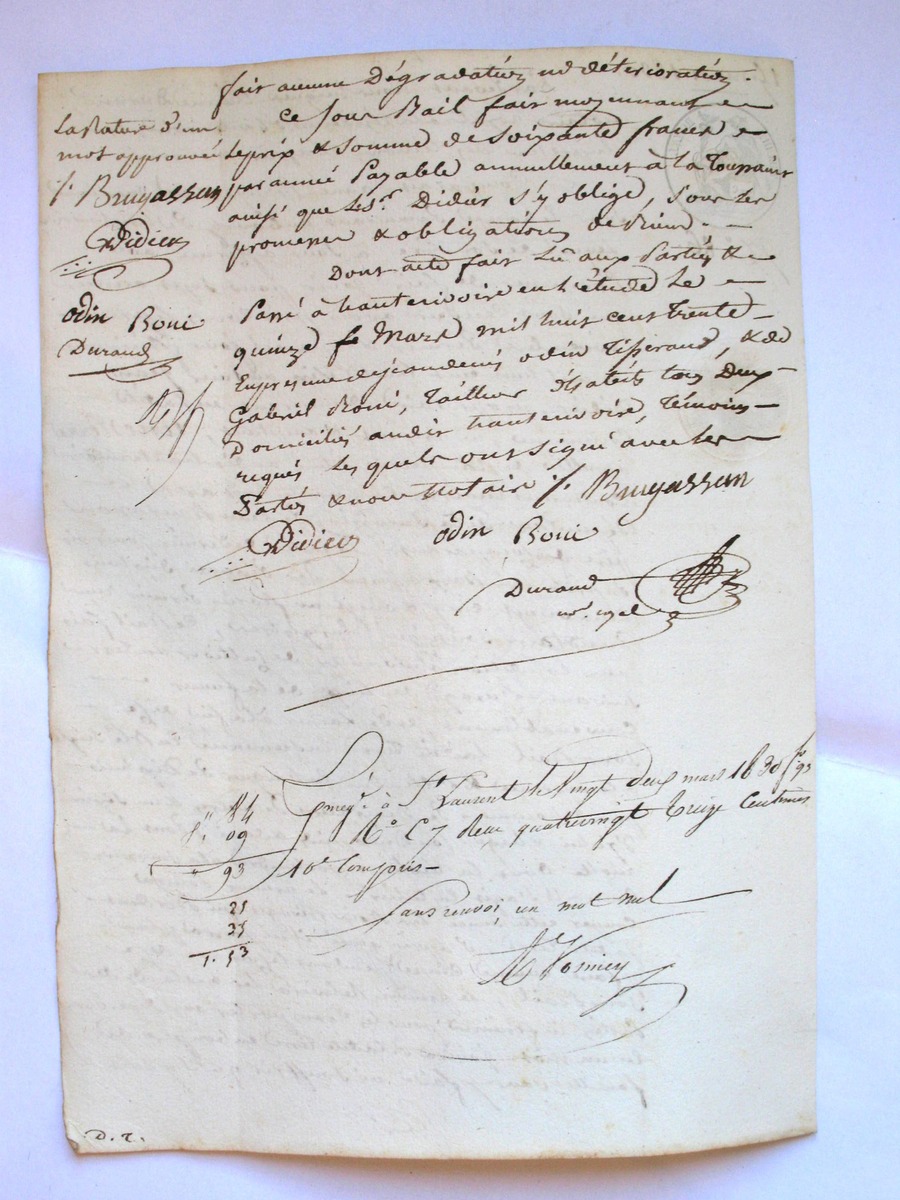 fair aucune Dégradation ni détérioration.
ce Sous Bail fair moyennant
le prix & Somme de Soixante francs
par année Payable annuellement à la Toussaint
ainsi que le Sr. Didier s'y oblige, Sous les
promesses & obligations de Rieur.
Dont acte fait Lû aux Parties &
Passé à hauterivoire en l'étude Le
quinze Mars mil huit cent trente
En présence de jean denis odin Tisserand, & de
Gabriel Boni, Tailleur d'habits tous Deux
Domiciliés audit hauterivoire, Témoins
requis Lesquels ont Signé avec les
Parties & nous Notaire /. Brugassun
Didier odin Boni
Durand
nre. royal
La Rature d'un
mot approuvée
/. Brugassun
Didier
odin Boni
Durand
Enregt. à St Laurent le Vingt deux mars 1830 fo 93
Ro C 7 Reçu quatrevingt treize Centimes
10e Compris
Sans renvoi un mot nul
84
09
93
25
35
1. 53
D. T.